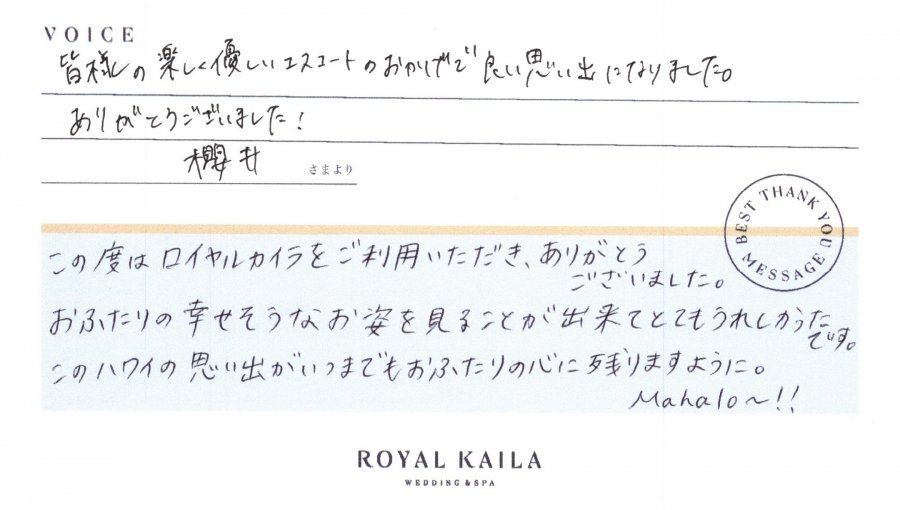 VOICE
皆様の楽しく優しいエスコートのおかげで良い思い出になりました。
ありがとうございました!
櫻井 さまより
BEST THANK YOU MESSAGE
この度はロイヤルカイラをご利用いただき、ありがとう
ございました。
おふたりの幸せそうなお姿を見ることが出来てとてもうれしかった
です。
このハワイの思い出がいつまでもおふたりの心に残りますように。
Mahalo〜!!
ROYAL KAILA
WEDDING & SPA